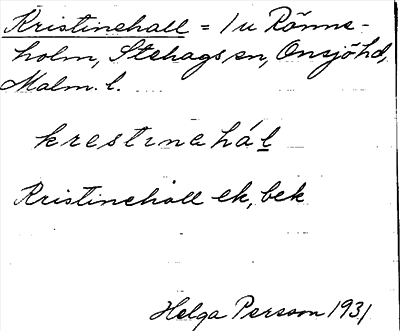 Kristinehall = 1 u Rönne-
holm, Stehags sn, Onsjö hd,
Malm. l.
krestɪnahál
Kristinehall ek, bek
Helga Persson 1931